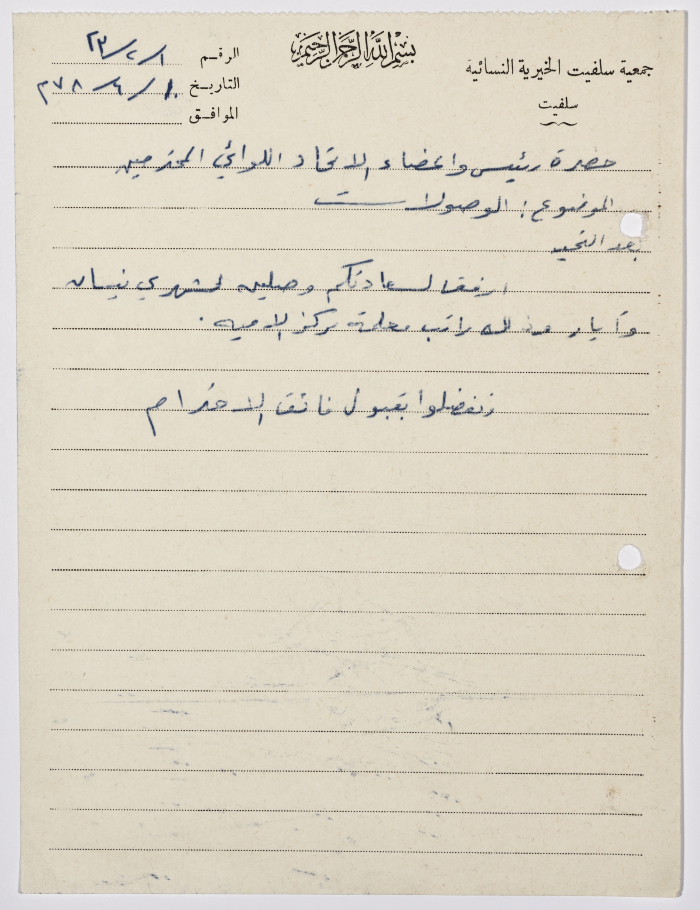 بسم الله الرحمن الرحيم
جمعية سلفيت الخيرية النسائية
سلفيت
الرقم ٢٣/٢/١
التاريخ ١٠/٦/٩٧٨
الموافق
حضرة رئيس واعضاء الاتحاد اللوائي المحترمين
الموضوع : الوصولات
بعد التحية
ارفق لسعادتكم وصلين لشهري نيسان
وأيار وذلك راتب معلمة مركز الامية .
وتفضلوا بقبول فائق الاحترام